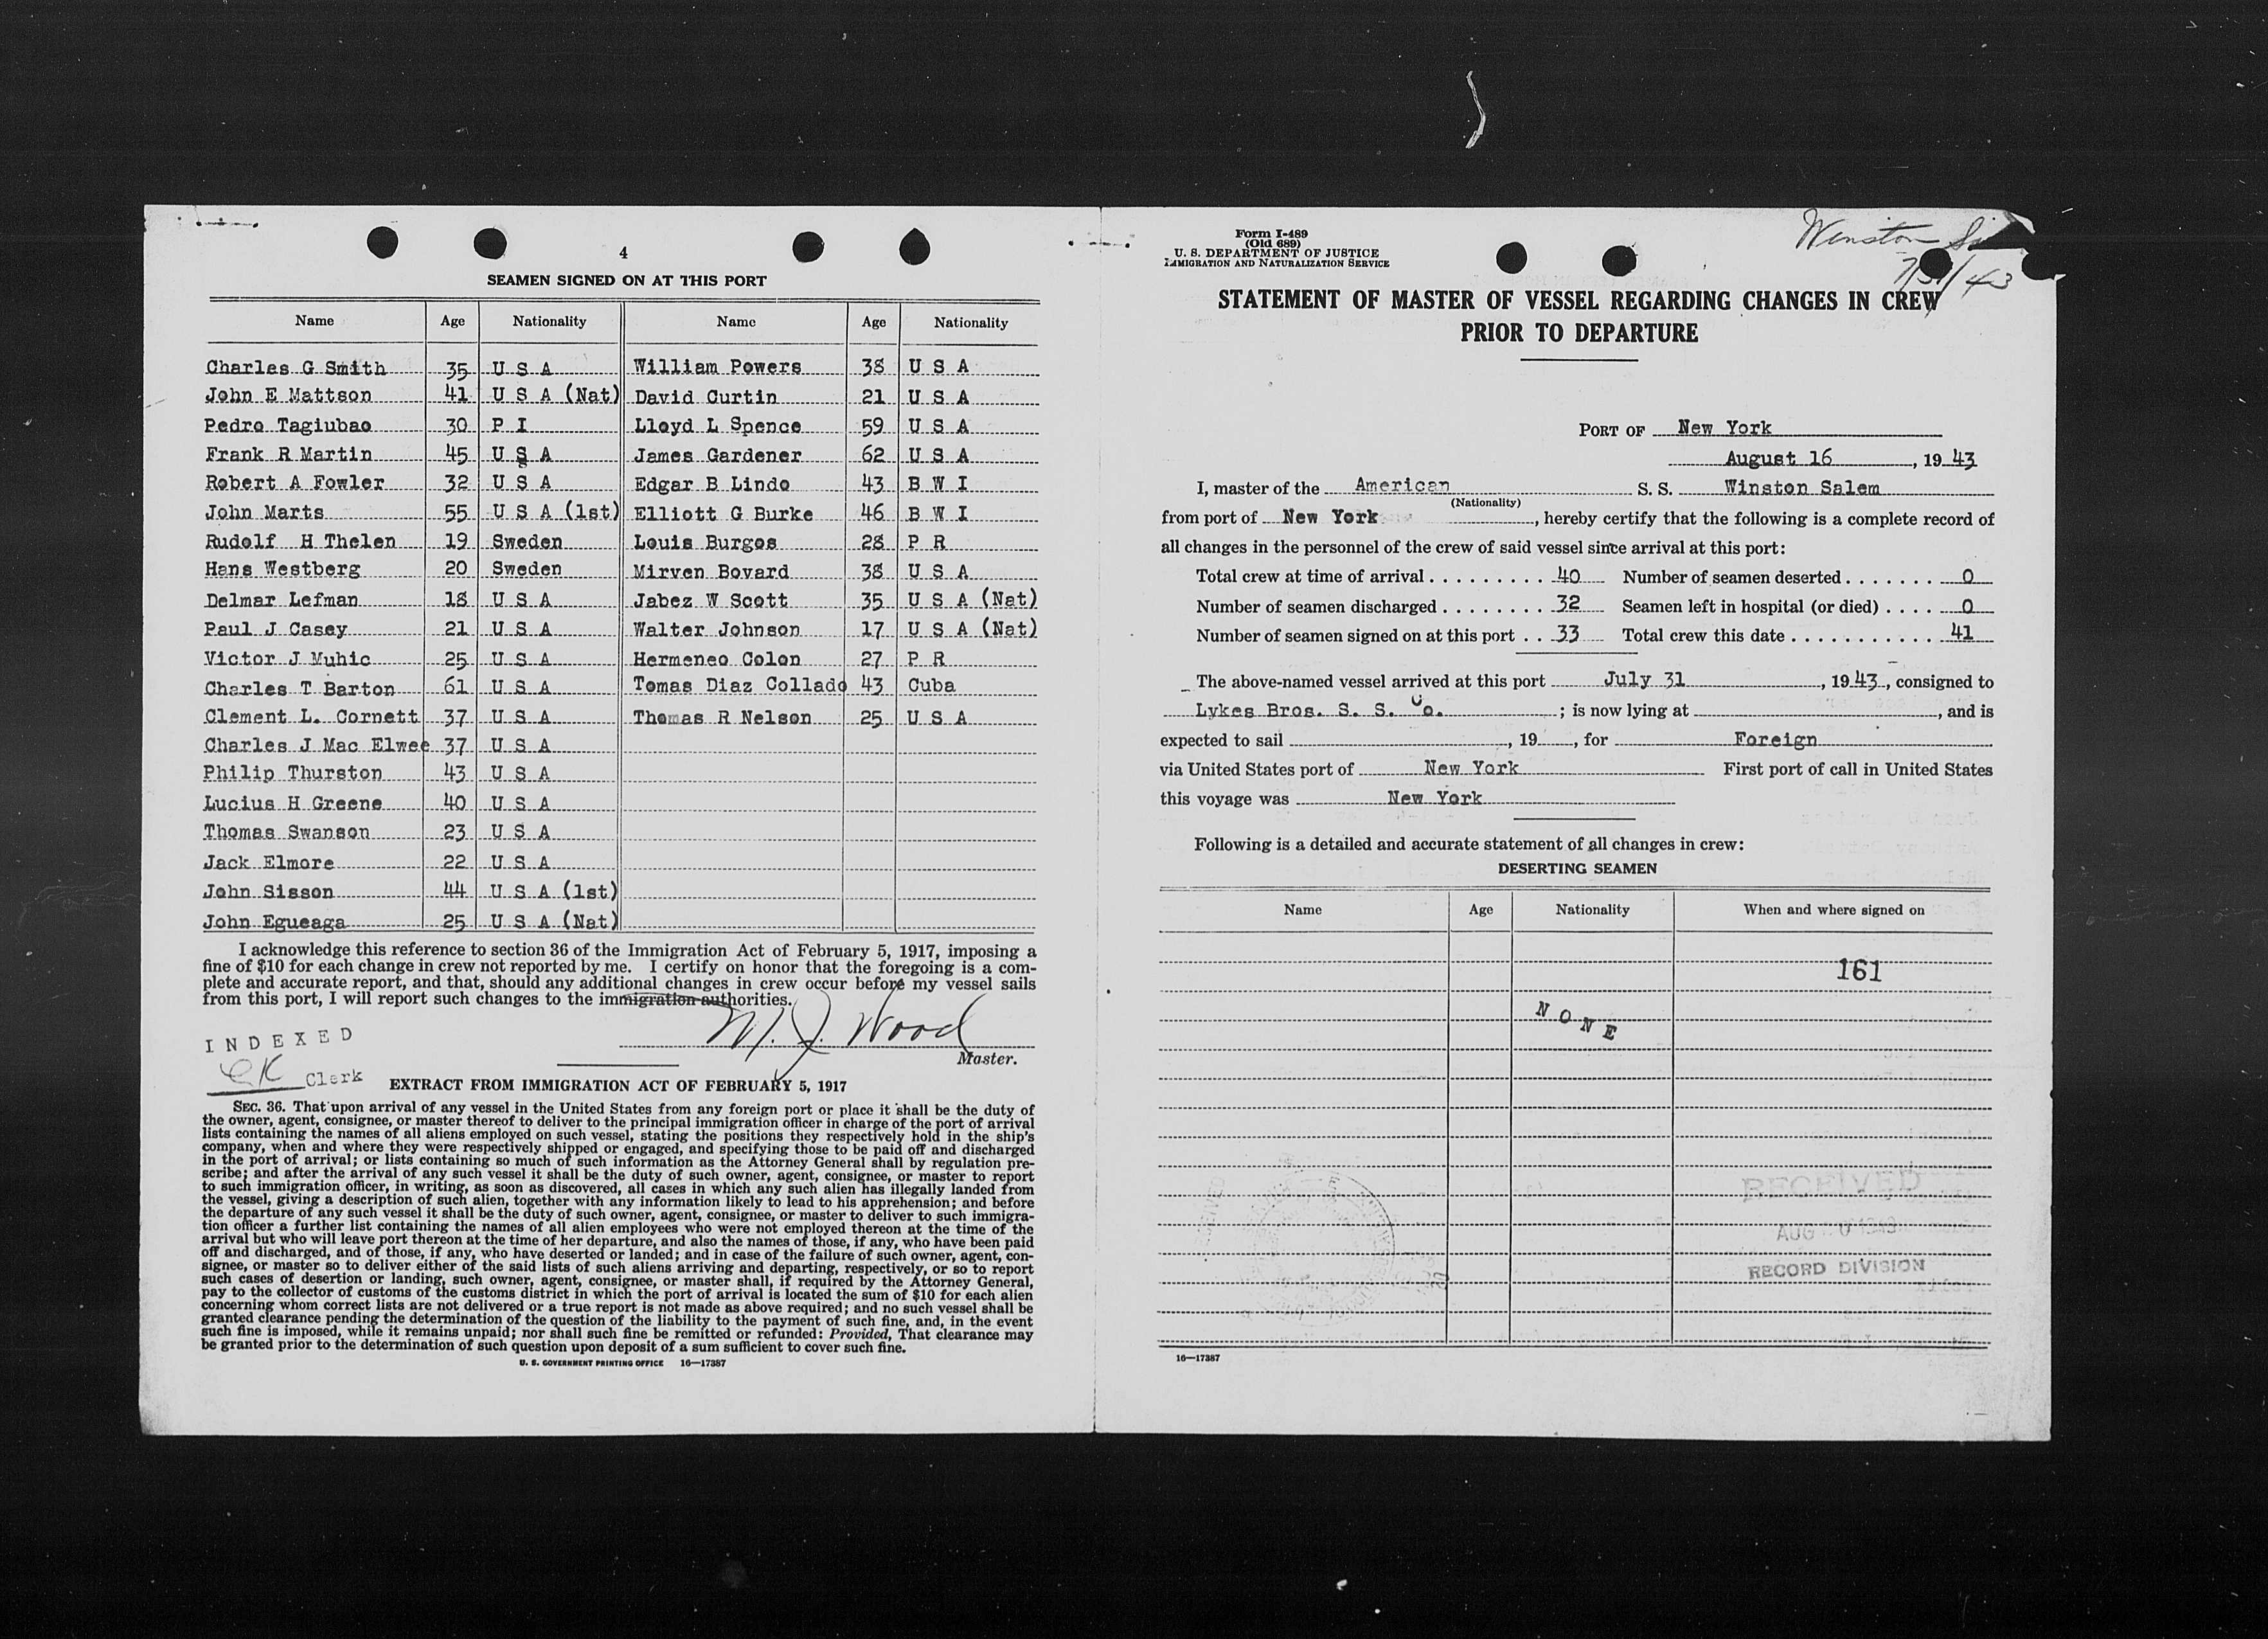 4
SEAMEN SIGNED ON AT THIS PORT
Name Age Nationality Name Age Nationality
Charles G Smith 35 U S A William Powers 38 U S A
John E Mattson 41 U S A (Nat) David Curtin 21 U S A
Pedro Tagiubao 30 P I Lloyd L Spence 59 U S A
Frank R Martin 45 U S A James Gardener 62 U S A
Robert A Fowler 32 U S A Edgar B Lindo 43 B W I
John Marts 55 U S A (1st) Elliott G Burke 46 B W I
Rudolf H Thelen 19 Sweden Louis Burgos 28 P R
Hans Westberg 20 Sweden Mirven Bovard 38 U S A
Delmar Lefman 18 U S A Jabez W Scott 35 U S A (Nat)
Paul J Casey 21 U S A Walter Johnson 17 U S A (Nat)
Victor J Muhic 25 U S A Hermeneo Colon 27 P R
Charles T Barton 61 U S A Tomas Diaz Collado 43 Cuba
Clement L. Cornett 37 U S A Thomas R Nelson 25 U S A
Charles J Mac Elwee 37 U S A
Philip Thurston 43 U S A
Lucius H Greene 40 U S A
Thomas Swanson 23 U S A
Jack Elmore 22 U S A
John Sisson 44 U S A (1st)
John Egueaga 25 U S A (Nat)
I acknowledge this reference to section 36 of the Immigration Act of February 5, 1917, imposing a
fine of $10 for each change in crew not reported by me. I certify on honor that the foregoing is a com-
plete and accurate report, and that, should any additional changes in crew occur before my vessel sails
from this port, I will report such changes to the immigration authorities.
M. J. Wood
Master.
INDEXED
CK Clerk
EXTRACT FROM IMMIGRATION ACT OF FEBRUARY 5, 1917
SEC. 36. That upon arrival of any vessel in the United States from any foreign port or place it shall be the duty of
the owner, agent, consignee, or master thereof to deliver to the principal immigration officer in charge of the port of arrival
lists containing the names of all aliens employed on such vessel, stating the positions they respectively hold in the ship's
company, when and where they were respectively shipped or engaged, and specifying those to be paid off and discharged
in the port of arrival; or lists containing so much of such information as the Attorney General shall by regulation pre-
scribe; and after the arrival of any such vessel it shall be the duty of such owner, agent, consignee, or master to report
to such immigration officer, in writing, as soon as discovered, all cases in which any such alien has illegally landed from
the vessel, giving a description of such alien, together with any information likely to lead to his apprehension; and before
the departure of any such vessel it shall be the duty of such owner, agent, consignee, or master to deliver to such immigra-
tion officer a further list containing the names of all alien employees who were not employed thereon at the time of the
arrival but who will leave port thereon at the time of her departure, and also the names of those, if any, who have been paid
off and discharged, and of those, if any, who have deserted or landed; and in case of the failure of such owner, agent, con-
signee, or master so to deliver either of the said lists of such aliens arriving and departing, respectively, or so to report
such cases of desertion or landing, such owner, agent, consignee, or master shall, if required by the Attorney General,
pay to the collector of customs of the customs district in which the port of arrival is located the sum of $10 for each alien
concerning whom correct lists are not delivered or a true report is not made as above required; and no such vessel shall be
granted clearance pending the determination of the question of the liability to the payment of such fine, and, in the event
such fine is imposed, while it remains unpaid; nor shall such fine be remitted or refunded: Provided, That clearance may
be granted prior to the determination of such question upon deposit of a sum sufficient to cover such fine.
U. S. GOVERNMENT PRINTING OFFICE 16—17387
Winston
7/31/43
Form I-489
(Old 689)
U. S. DEPARTMENT OF JUSTICE
IMMIGRATION AND NATURALIZATION SERVICE
STATEMENT OF MASTER OF VESSEL REGARDING CHANGES IN CREW
PRIOR TO DEPARTURE
PORT OF New York
August 16, 1943
I, master of the American S. S. Winston Salem
(Nationality)
from port of New York, hereby certify that the following is a complete record of
all changes in the personnel of the crew of said vessel since arrival at this port:
Total crew at time of arrival . . . . . . . . . 40 Number of seamen deserted . . . . . . . 0
Number of seamen discharged . . . . . . . 32 Seamen left in hospital (or died) . . . . 0
Number of seamen signed on at this port . . 33 Total crew this date . . . . . . . . . . . . 41
The above-named vessel arrived at this port July 31, 1943, consigned to
Lykes Bros. S. S. Co. ; is now lying at , and is
expected to sail , 19 , for Foreign
via United States port of New York First port of call in United States
this voyage was New York
Following is a detailed and accurate statement of all changes in crew:
DESERTING SEAMEN
Name Age Nationality When and where signed on
161
NONE
RECEIVED
AUG 1943
RECORD DIVISION
16—17387